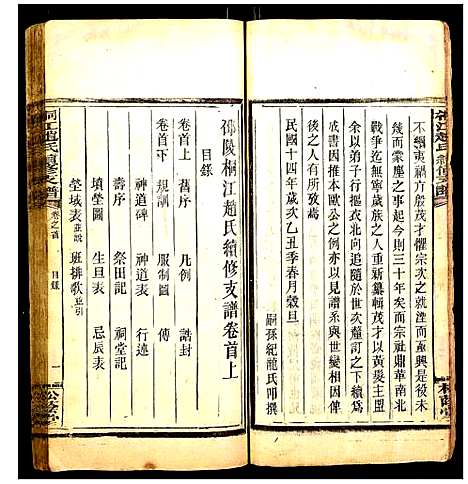 桐江趙氏續修支譜
不續夷禍方殷茂才懼宗次之就堙而重興是役未
幾而蒙塵之事起今則三十年矣而宗社鼎革南北
戰爭迄無寧歲茂才重新纂輯茂才以黃髮主盟
以弟子行摳衣北向追隨於世次釐訂之下續
成書因推本歐公之例亦以見譜系與世變相因俾
後之人有所攷焉
民國十四年歲次乙丑季春月穀旦
嗣孫紀龍氏叩撰
松蔭堂
邵陵桐江趙氏續修支譜卷首上
目錄
卷首上
舊序 凡例 誥封
卷首下
規訓 服制圖 傳
神道碑 神道表 行述
壽序 祭田記 祠堂記
墳塋圖 生旦表 忌辰表
塋域表並說 班排敘並引
桐江趙氏續修支譜
卷之首
目錄
一
松蔭堂